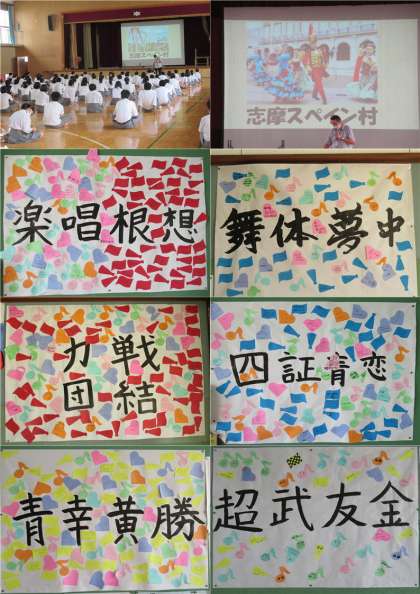 志摩スペイン村
志摩スペイン村
楽唱根想
舞体夢中
力戦
団結
四証青恋
青幸黄勝
超武友金